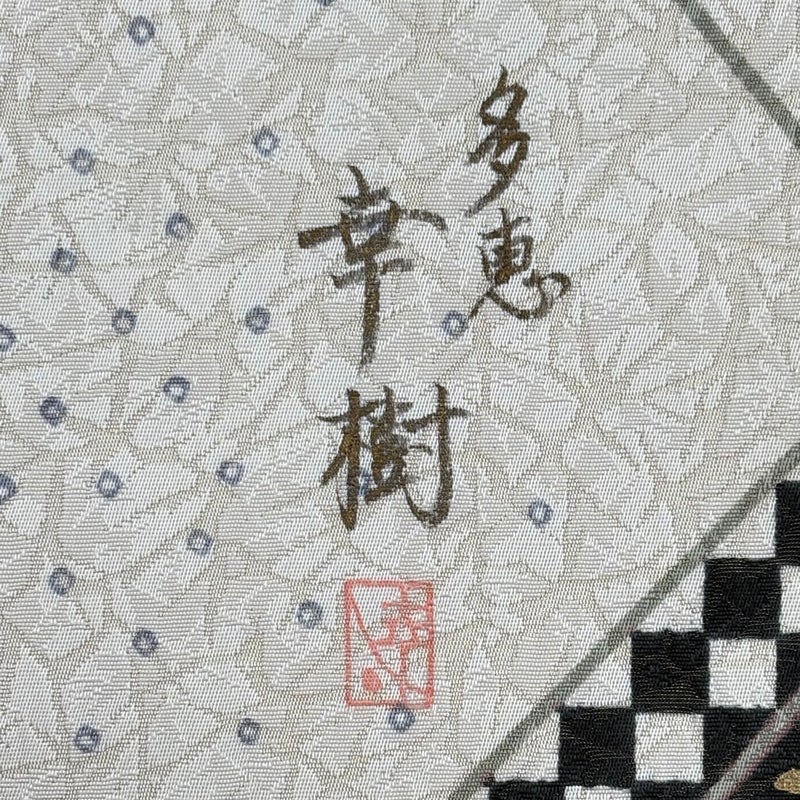 多恵
幸樹